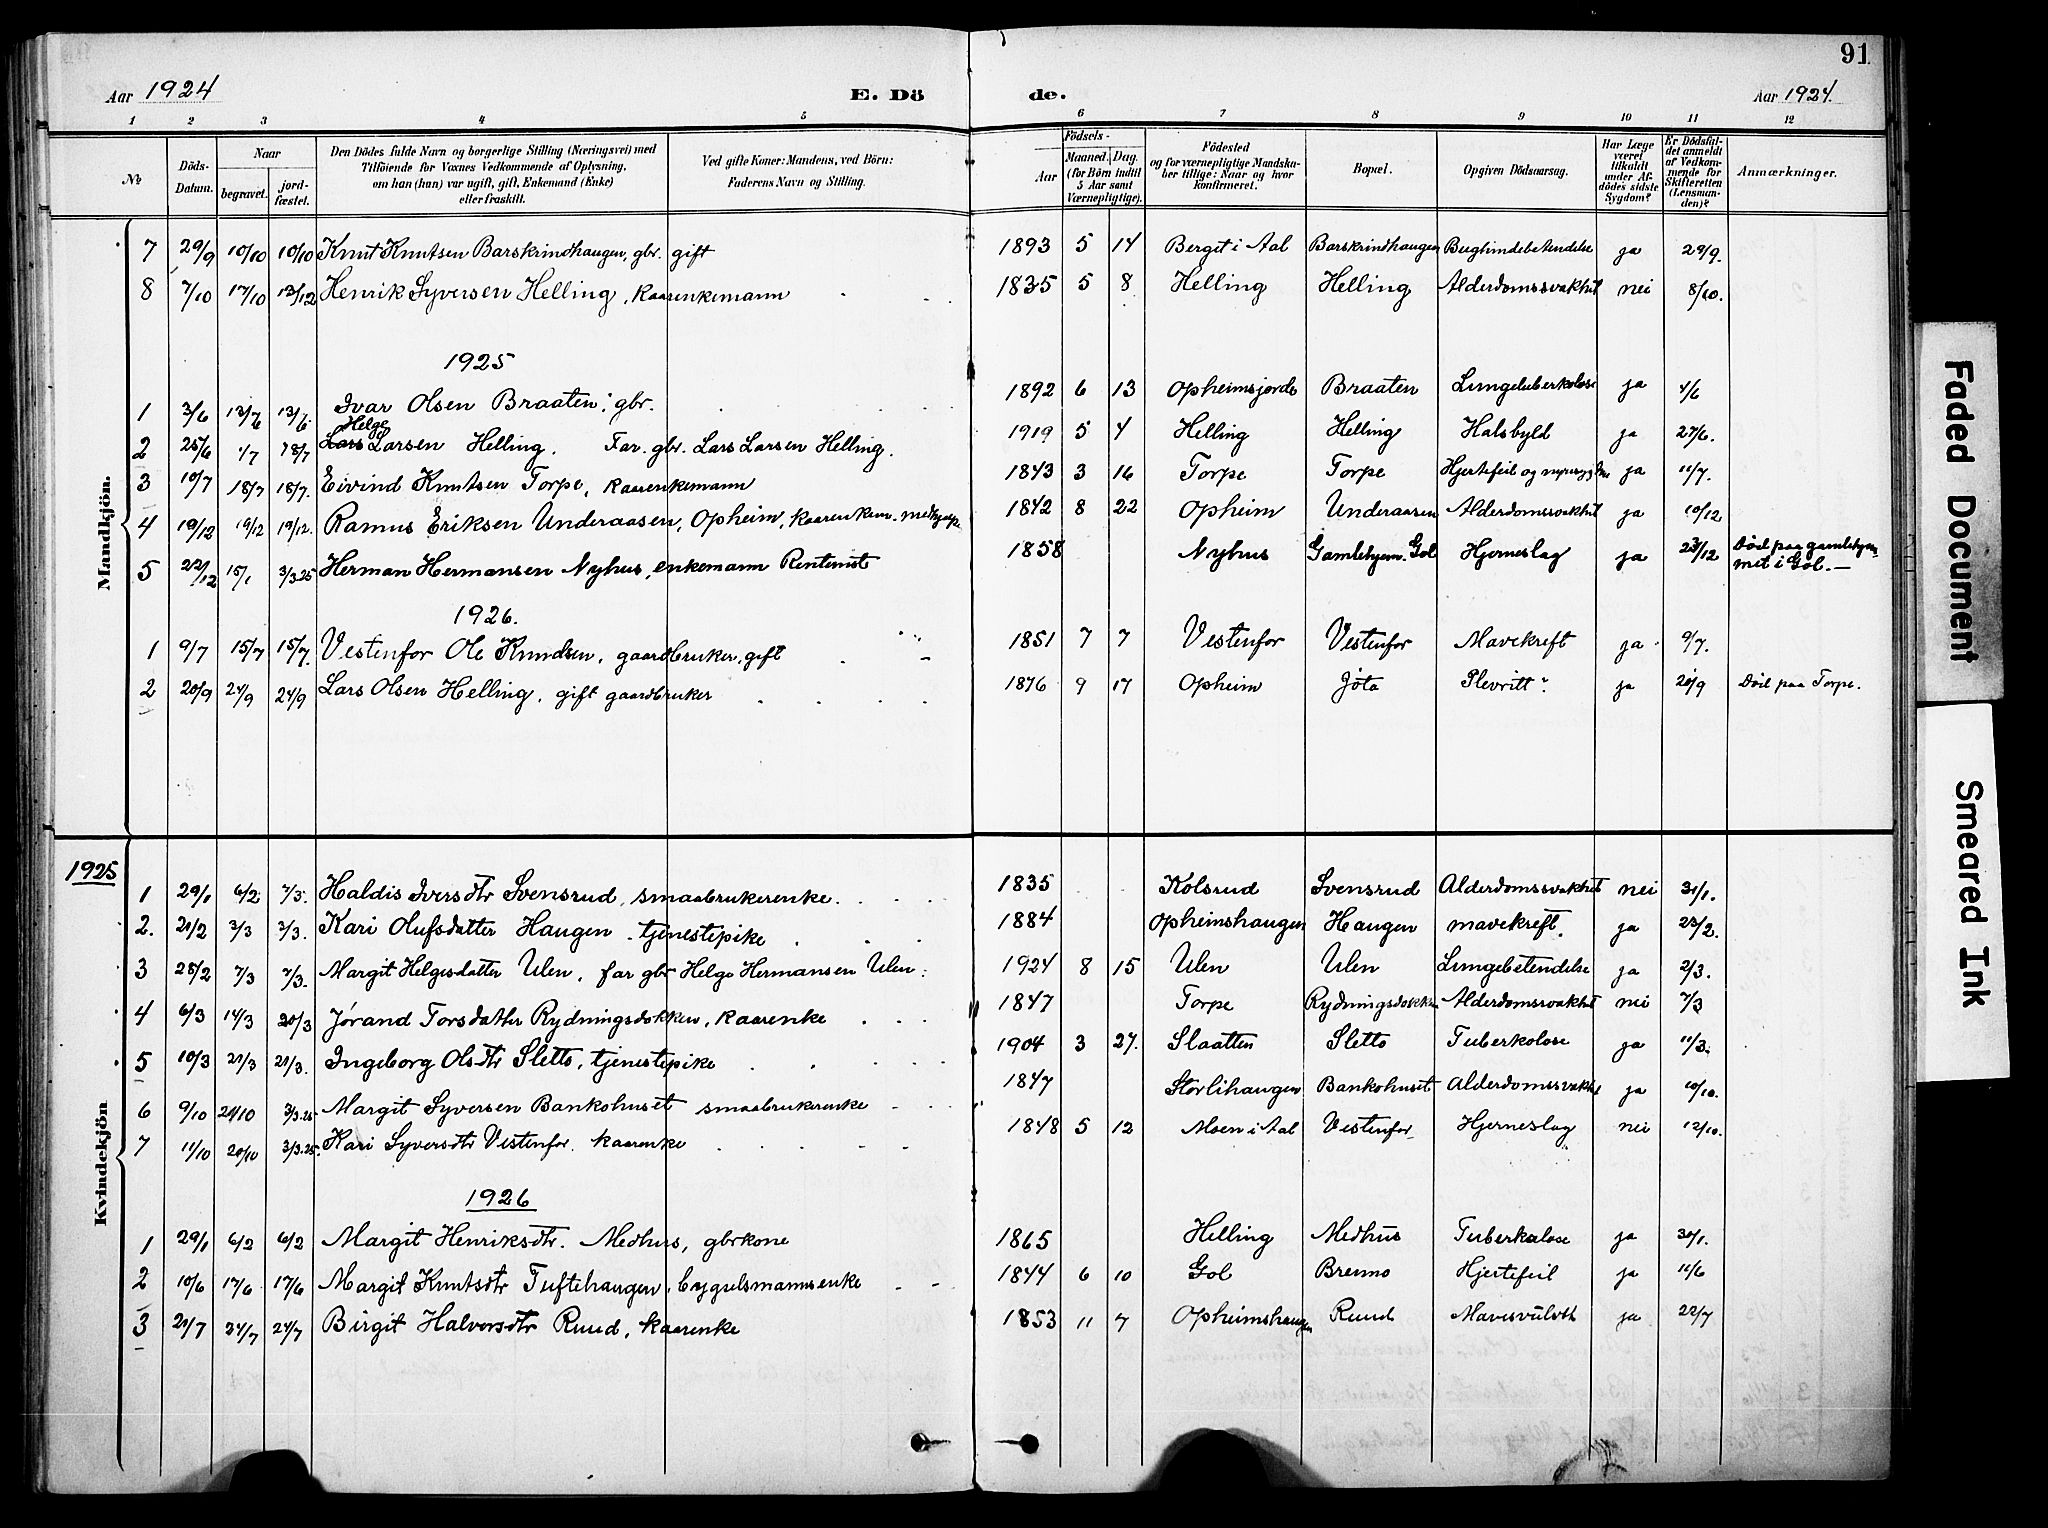 91
Aar 1924 E. Dö de. Aar 1924.
1 2 3 4 5 6 7 8 9 10 11 12
№
Döds-Datum.
Naar
begravet.
jord-fæstet.
Den Dödes fulde Navn og borgerlige Stilling (Næringsvei) med
Tilföiende for Voxnes Vedkommende af Oplysning,
om han (hun) var ugift, gift, Enkemand (Enke)
eller fraskilt.
Ved gifte Koner: Mandens, ved Börn:
Faderens Navn og Stilling.
Födsels-
Aar
Maaned. Dag.
(for Börn indtil
5 Aar samt
Værnepligtige).
Födested
og for værnepligtige Mandska-
ber tillige: Naar og hvor
konfirmeret.
Bopæl.
Opgiven Dödsaarsag.
Har Læge
været
tilkaldt
under Af-
dödes sidste
Sygdom?
Er Dödsfal-
det anmeldt
af Vedkom-
mende for
Skifteretten
(Lensman-
den)?
Anmærkninger.
Mandkjön.
7 29/9 10/10 10/10 Knut Knutsen Barskrindhaugen, gbr. gift 1893 5 14 Berget i Aal Barskrindhaugen Bughindebetendelse ja 29/9.
8 7/10 17/10 13/12 Henrik Syversen Helling, Kaarenkemann 1835 5 8 Helling Helling Alderdomssvakhet nei 8/10.
1925
1 3/6 13/6 13/6. Ivar Olsen Braaten, gbr. 1892 6 13 Opheimsjorde Braaten Lungetuberkolose ja 4/6
Helge
2 25/6 1/7 18/7 Lars Larsen Helling. Far. gbr. Lars Larsen Helling. 1919 5 4 Helling Helling Halsbyld ja 27/6.
3 10/7 18/7 18/7. Eivind Knutsen Torpe, kaarenkemann 1843 3 16 Torpe Torpe Hjertefeil og ja 11/7.
4 10/12 19/12 19/12. Ramus Eriksen Underaasen, Opheim, kaarenkem. 1842 8 22 Opheim Underaasen Alderdomssvakhet ja 10/12
5 22/12 15/1 3/3.25 Herman Hermansen Nyhus, enkemann Rentenist 1858 Nyhus Gamlehjem. Gol Hjerneslag ja 23/12 Död paa gamlehjem
met i Gol.—
1926.
1 9/7 15/7 15/7. Vestenfor Ole Knudsen, gaardbruker, gift 1851 7 7 Vestenfor Vestenfor Mavekreft ja 9/7.
2 20/9 24/9 24/9 Lars Olsen Helling, gift gaardbruker 1876 9 17 Opheim Jöto Plevritt ja 20/9 Död paa Torpe.
Kvindekjön
1925
1 29/1 6/2 7/3. Haldis Iversdtr Svensrud, smaabrukerenke. 1835 Kolsrud Svensrud Alderdomssvakhet nei 31/1.
2. 21/2 3/3 3/3. Kari Olufsdatter Haugen, tjenestepike 1884 Opheimshaugen Haugen mavekreft. ja 23/2.
3 28/2 7/3 7/3. Margit Helgesdatter Ulen, far gbr Helge Hermansen Ulen. 1924 8 15 Ulen Ulen Lungebetendelse ja 2/3.
4 6/3 14/3 20/3 Jørand Torsdatter Rydningsdokken, kaarenke 1847 Torpe Rydningsdokken Alderdomssvakhet nei 7/3
5 10/3 21/3 21/3. Ingeborg Olsdtr Sletto, tjenestepike 1904 3 27. Slaatten Sletto Tuberkolose ja 11/3.
6 9/10 20/10 3/3.25 Margit Syversen Bankohuset smaabrukerenke 1847 Storlihaugen Bankohuset Alderdomssvakhet ja 10/10.
7 11/10 20/10 3/3.25. Kari Syversdtr Vestenfor. kaarenke 1848 5 12 Moen i Aal Vestenfor Hjerneslag nei 12/10.
1926
1 29/1 6/2 6/2 Margit Henriksdtr. Medhus, gbrkone 1865 Helling Medhus Tuberkolose ja 30/1.
2 10/6 17/6 17/6 Margit Knutsdtr Tuftehaugen, bygselsmannsenke 1844 6 10 Gol Brenno Hjertefeil ja 11/6
3 21/7 24/7 24/7 Birgit Halvorsdtr Ruud, kaarenke 1853 11 7 Opheimshaugen Ruud Mavesvulst ja 22/7
Faded Document
Smeared Ink